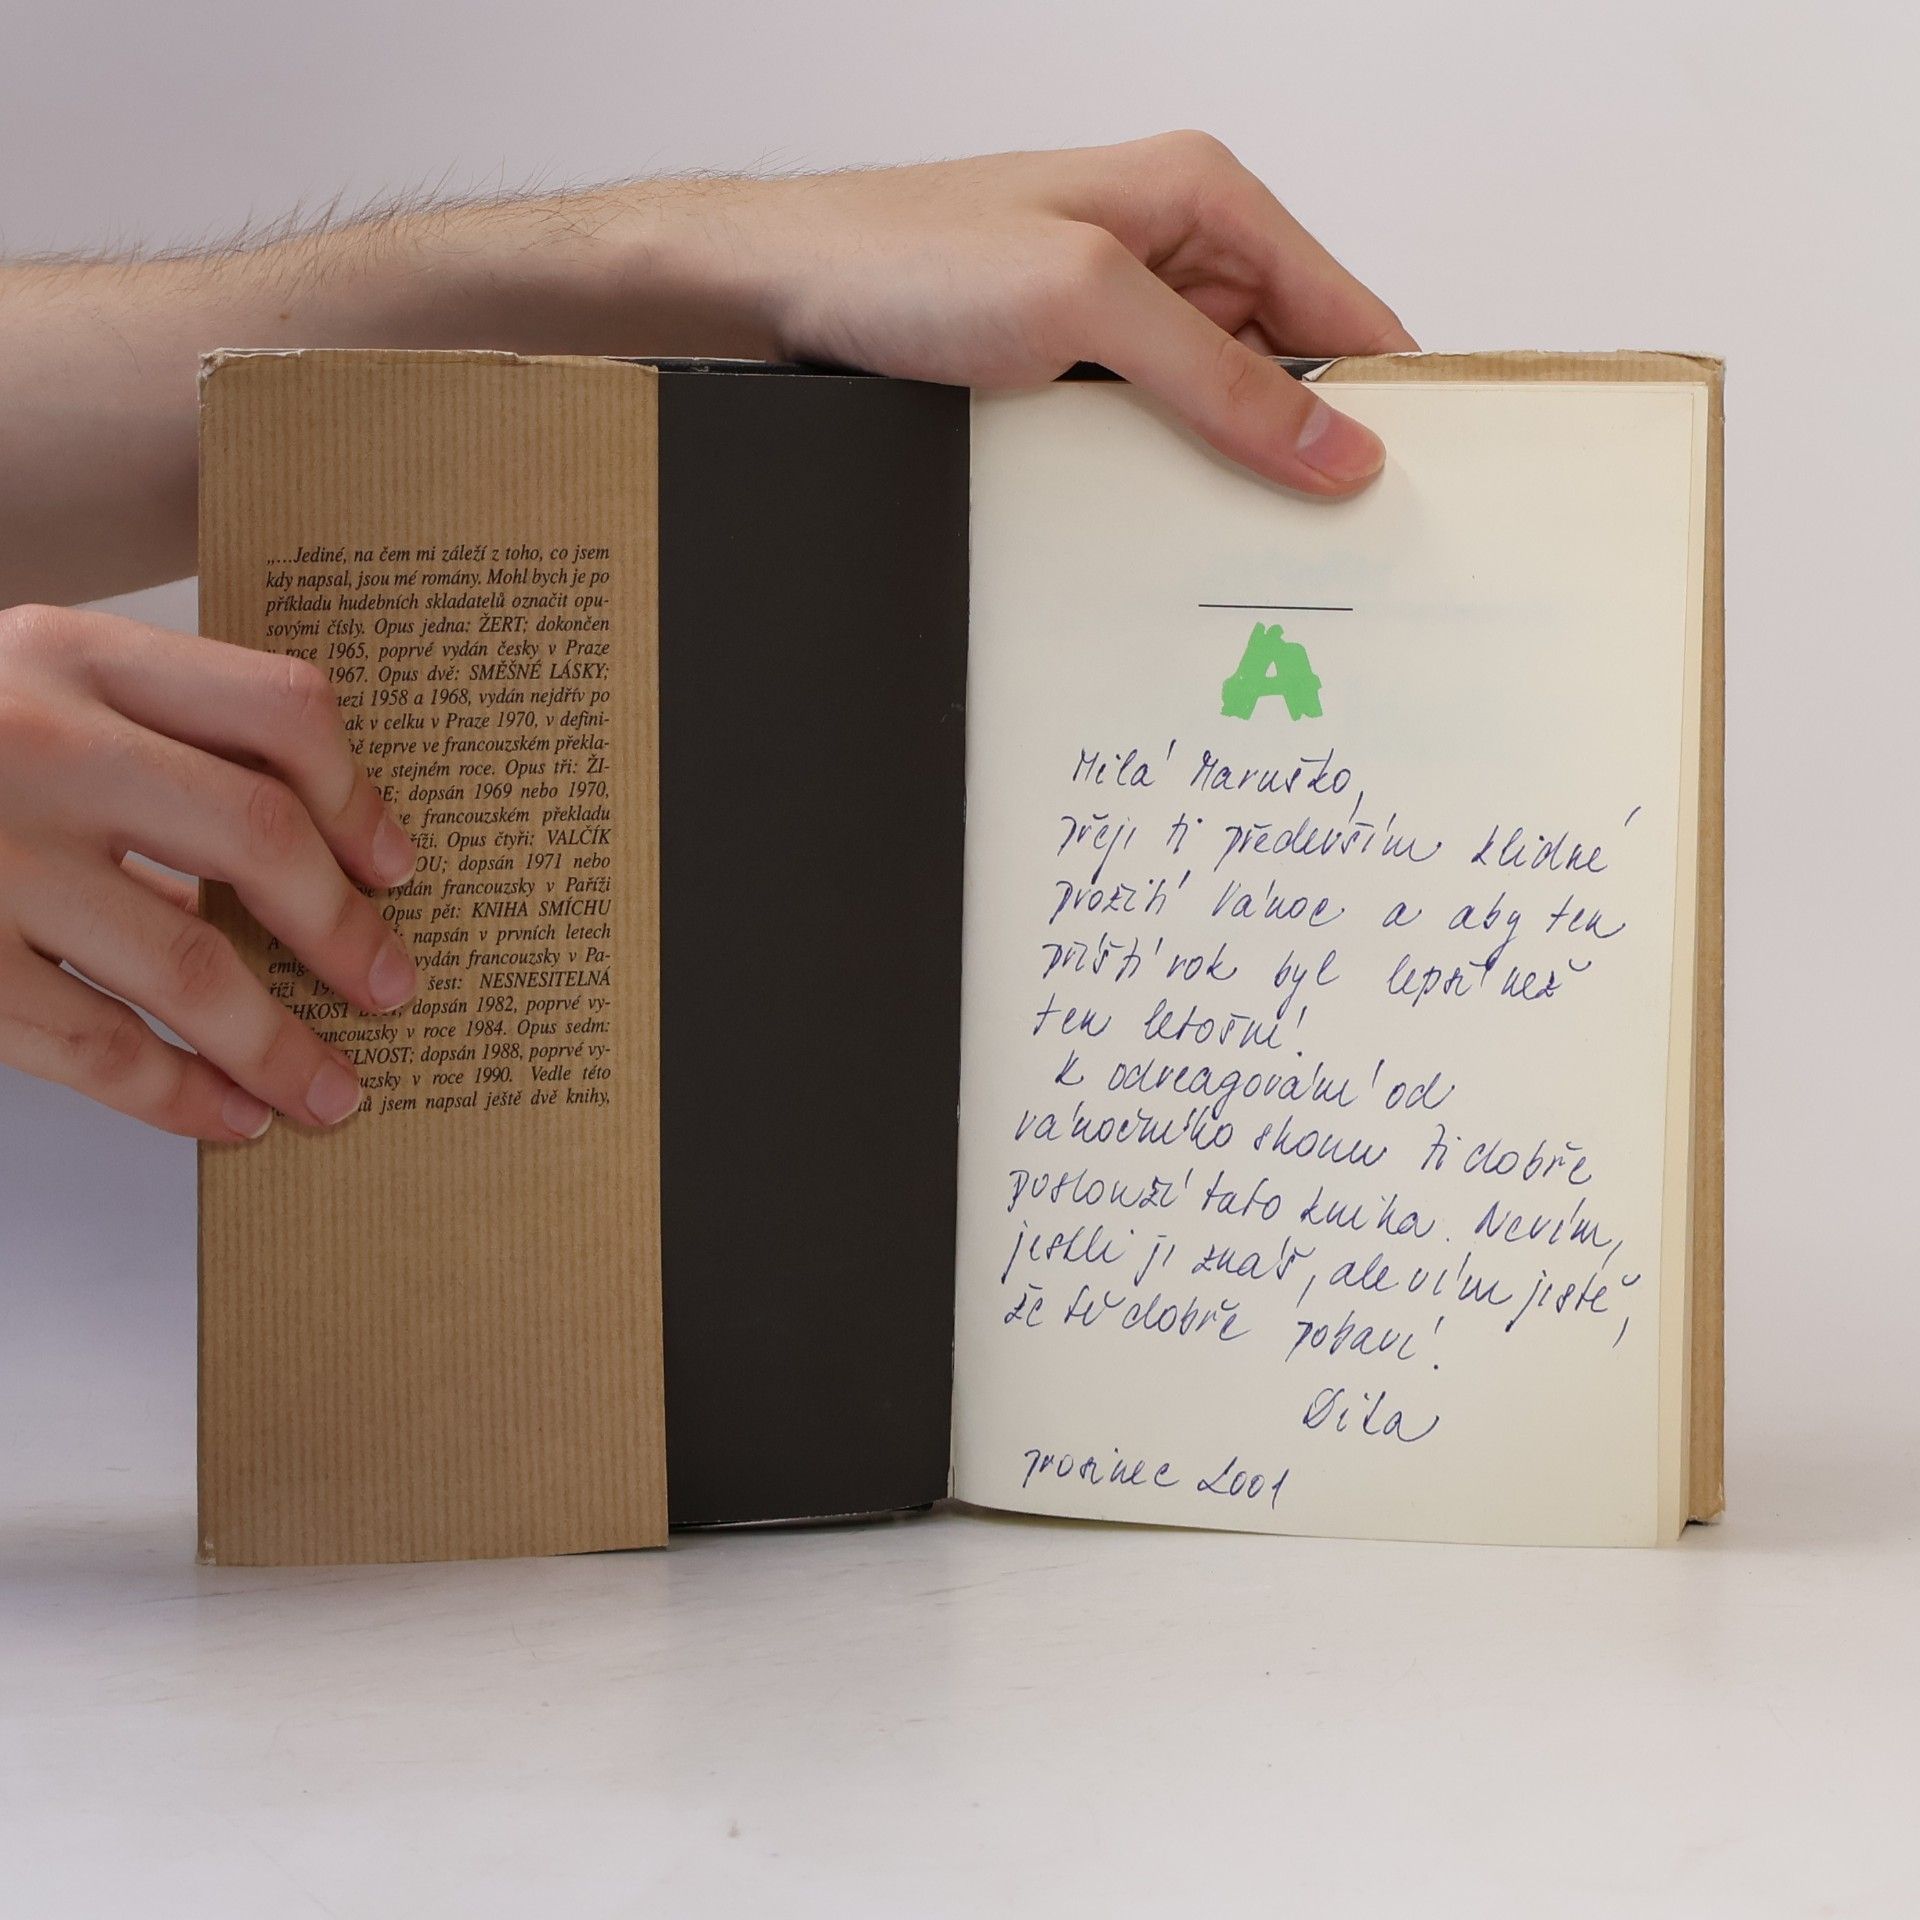 „…Jediné, na čem mi záleží z toho, co jsem
kdy napsal, jsou mé romány. Mohl bych je po
příkladu hudebních skladatelů označit opu-
sovými čísly. Opus jedna: ŽERT; dokončen
v roce 1965, poprvé vydán česky v Praze
1967. Opus dvě: SMĚŠNÉ LÁSKY;
mezi 1958 a 1968, vydán nejdřív po
ak v celku v Praze 1970, v defini-
bě teprve ve francouzském překla-
ve stejném roce. Opus tři: ŽI-
DE; dopsán 1969 nebo 1970,
ve francouzském překladu
říži. Opus čtyři: VALČÍK
OU; dopsán 1971 nebo
vydán francouzsky v Paříži
Opus pět: KNIHA SMÍCHU
A napsán v prvních letech
emig- vydán francouzsky v Pa-
říži 19 šest: NESNESITELNÁ
HKOST dopsán 1982, poprvé vy-
francouzsky v roce 1984. Opus sedm:
ELNOST; dopsán 1988, poprvé vy-
uzsky v roce 1990. Vedle této
ů jsem napsal ještě dvě knihy,
A
Milá Maruško,
přeji ti především klidné
prožití Vánoc a aby ten
příští rok byl lepší než
ten letošní!
K odreagování od
vánočního shonu ti dobře
poslouží tato kniha. Nevím,
jestli ji znáš, ale vím jistě,
že tě dobře pobaví!
Dita
prosinec 2001